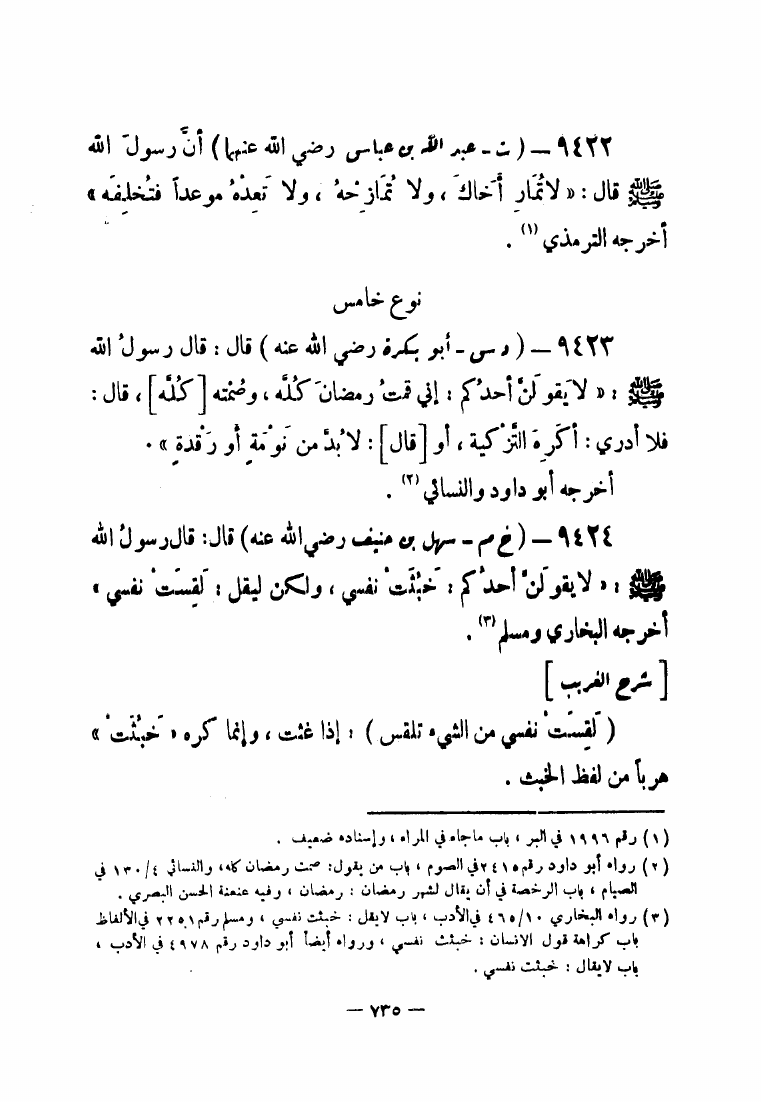 ٩٤٢٢ — ( ت - عبد الله بن عباس رضي الله عنهما ) أنَّ رسولَ الله
ﷺ قال : « لا تُمَارِ أَخاكَ ، ولا تُمَازِحْهُ ، ولا تَعِدْهُ موعداً فتُخلِفَه »
أخرجه الترمذي (١) .
نوع خامس
٩٤٢٣ — ( د س - أبو بكرة رضي الله عنه ) قال : قال رسولُ الله
ﷺ : « لا يَقولَنَّ أحدُكم : إني قمتُ رمضانَ كُلَّه ، وصُمْته [ كُلَّه ] ، قال :
فلا أدري : أكَرِهَ التَّزْكية ، أو [ قال ] : لابُدَّ من نَوْمَةٍ أو رَقْدةٍ » .
أخرجه أبو داود والنسائي (٢) .
٩٤٢٤ — ( خ م - سهل بن حنيف رضي الله عنه ) قال : قال رسولُ الله
ﷺ : « لا يقولَنَّ أحدُكم : خَبُثَتْ نفسي ، ولكن ليقل : لَقِسَتْ نفسي »
أخرجه البخاري ومسلم (٣) .
[ شرح الغريب ]
( لَقِسَتْ نفسي من الشيء تلقس ) : إذا غثت ، وإنما كره « خَبُثَتْ »
هرباً من لفظ الخبث .
(١) رقم ١٩٩٦ في البر ، باب ماجاء في المراء ، وإسناده ضعيف .
(٢) رواه أبو داود رقم ٢٤١٥ في الصوم ، باب من يقول : صمت رمضان كله ، والنسائي ١٣٠/٤ في
الصيام ، باب الرخصة في أن يقال لشهر رمضان : رمضان ، وفيه عنعنة الحسن البصري .
(٣) رواه البخاري ٤٦٥/١٠ في الأدب ، باب لا يقل : خبثت نفسي ، ومسلم رقم ٢٢٥١ في الألفاظ
باب كراهة قول الانسان : خبثت نفسي ، ورواه أيضاً أبو داود رقم ٤٩٧٨ في الأدب ،
باب لا يقال : خبثت نفسي .
— ٧٣٥ —